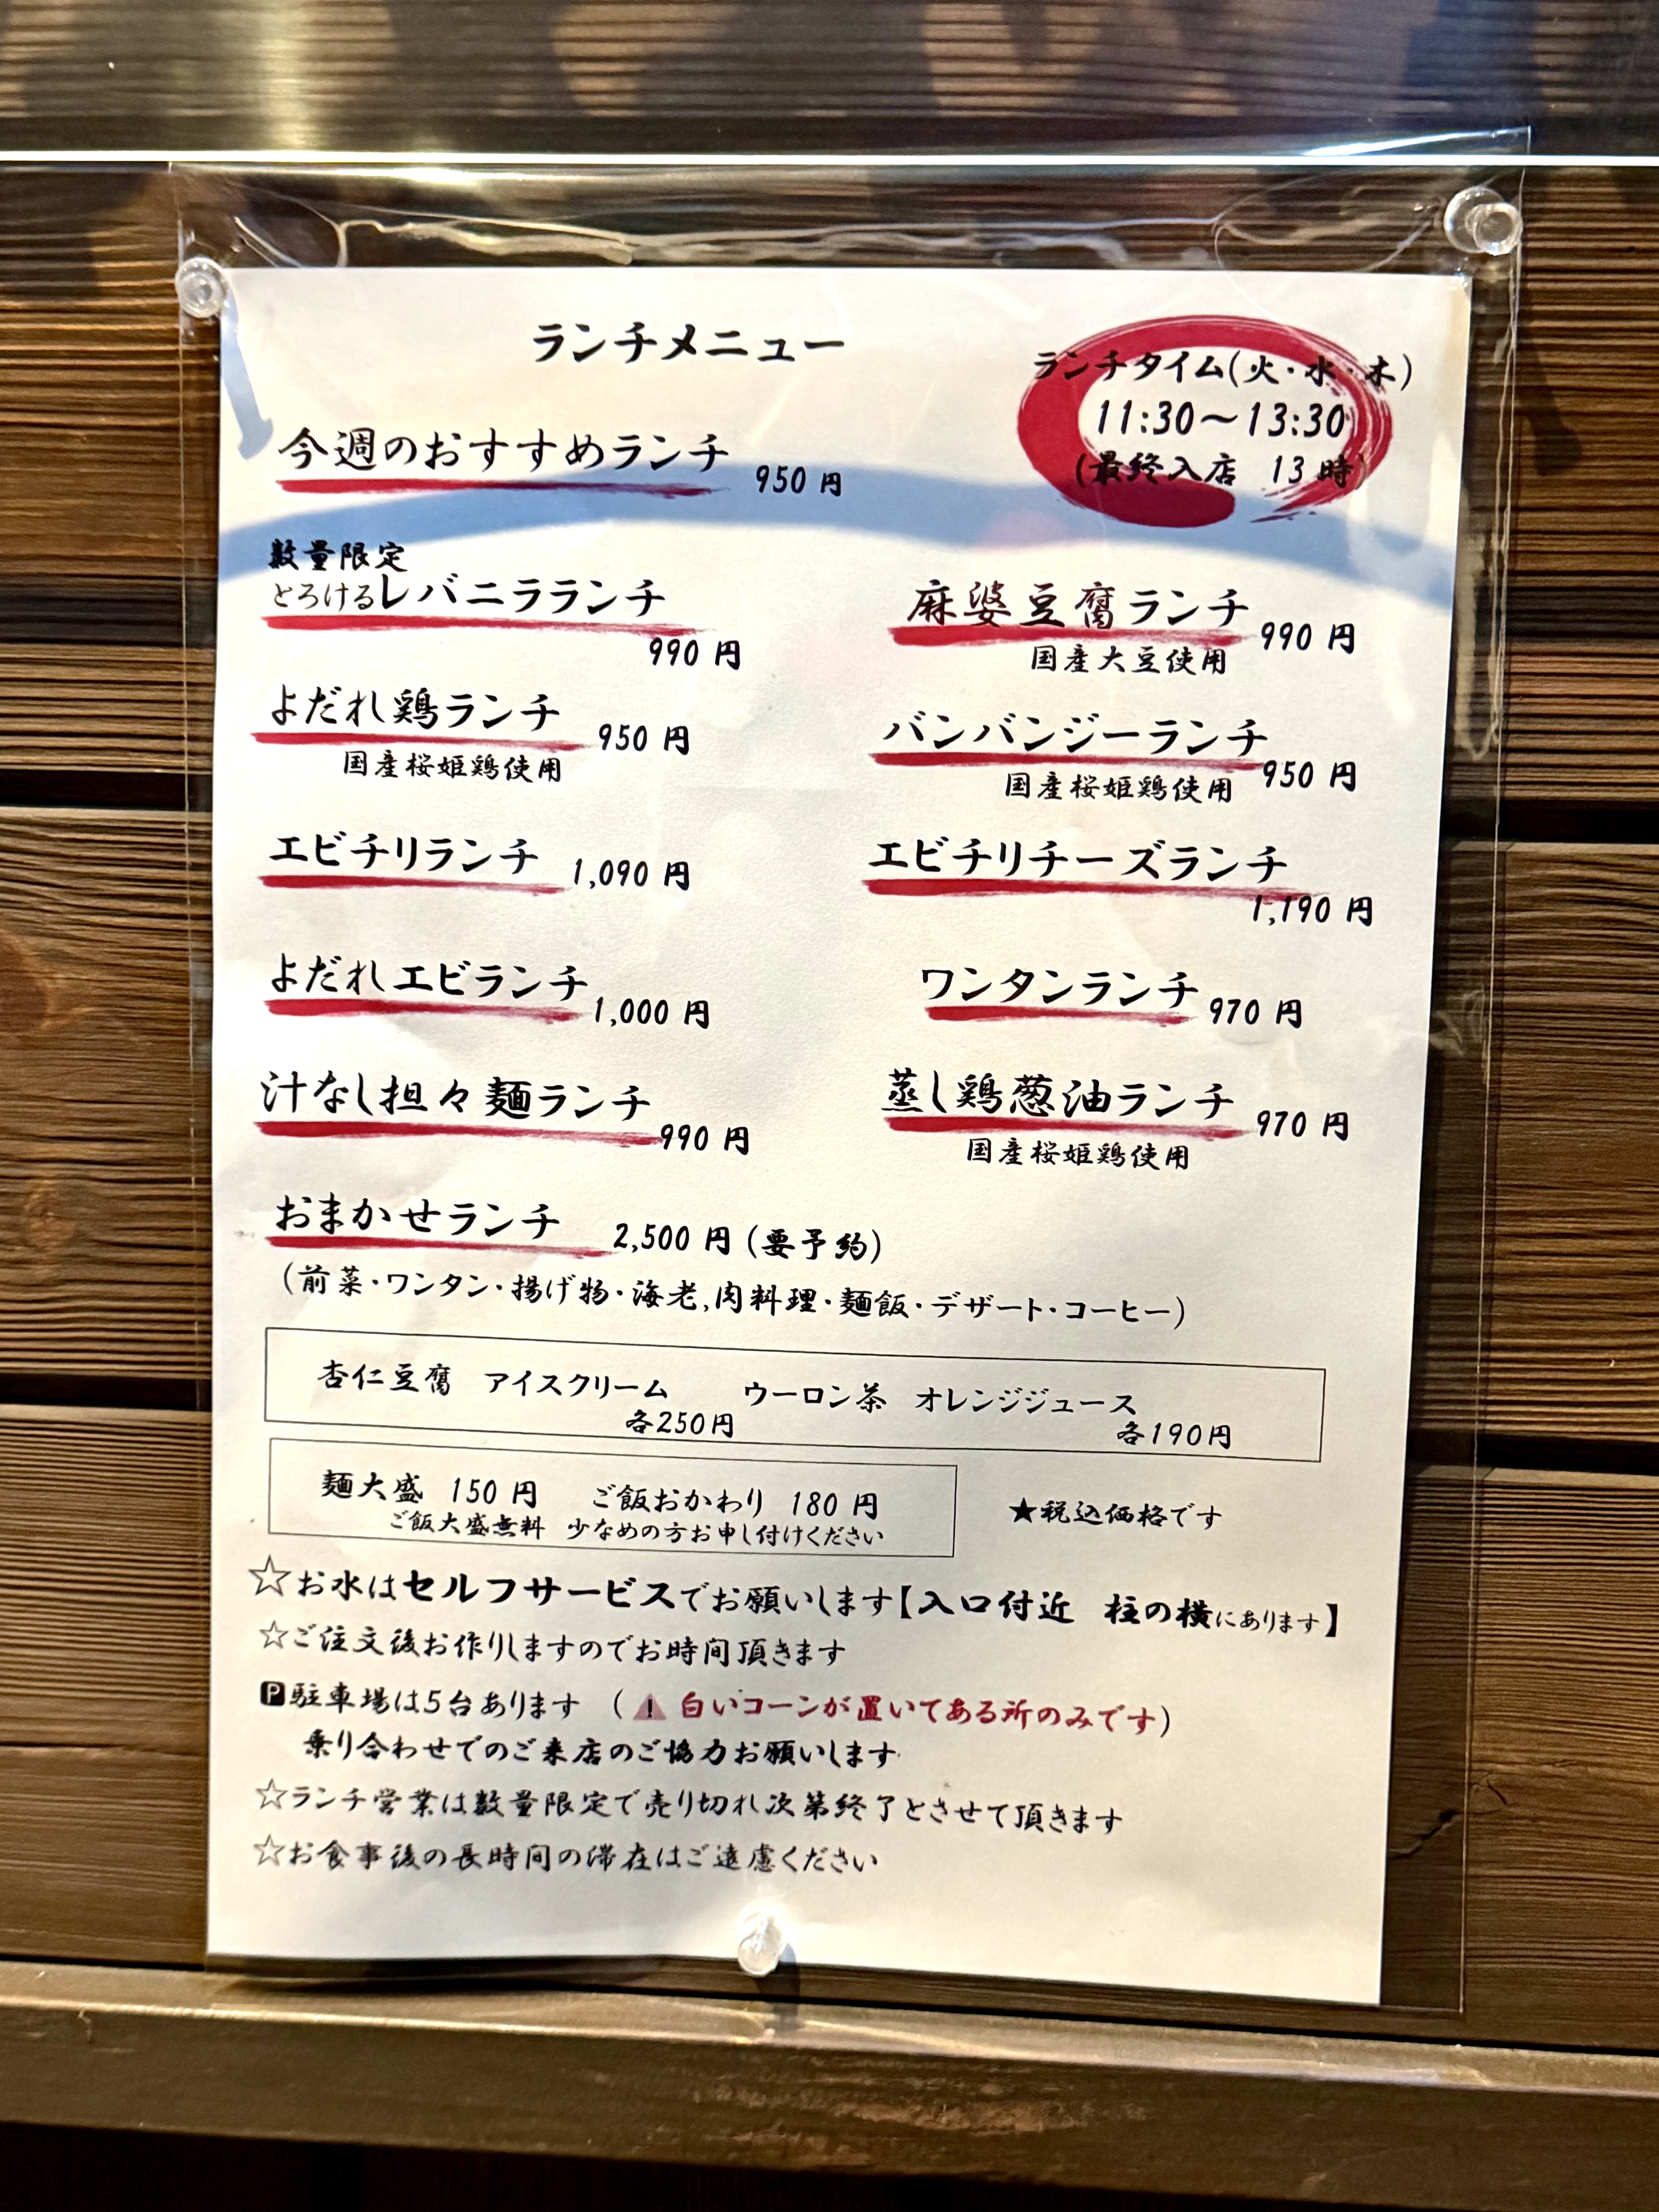 ランチメニュー
ランチタイム(火・水・木)
11:30～13:30
(最終入店 13時)
今週のおすすめランチ 950円
数量限定
とろけるレバニラランチ
990円
麻婆豆腐ランチ 990円
国産大豆使用
よだれ鶏ランチ 950円
国産桜姫鶏使用
バンバンジーランチ
国産桜姫鶏使用 950円
エビチリランチ 1,090円
エビチリチーズランチ
1,190円
よだれエビランチ 1,000円
ワンタンランチ 970円
汁なし担々麺ランチ 990円
蒸し鶏葱油ランチ 970円
国産桜姫鶏使用
おまかせランチ 2,500円(要予約)
(前菜・ワンタン・揚げ物・海老,肉料理・麺飯・デザート・コーヒー)
杏仁豆腐 アイスクリーム ウーロン茶 オレンジジュース
各250円 各190円
麺大盛 150円 ご飯おかわり 180円
ご飯大盛無料 少なめの方お申し付けください
★税込価格です
☆お水はセルフサービスでお願いします【入口付近 柱の横にあります】
☆ご注文後お作りしますのでお時間頂きます
🅿駐車場は5台あります (⚠白いコーンが置いてある所のみです)
乗り合わせでのご来店のご協力お願いします
☆ランチ営業は数量限定で売り切れ次第終了とさせて頂きます
☆お食事後の長時間の滞在はご遠慮ください